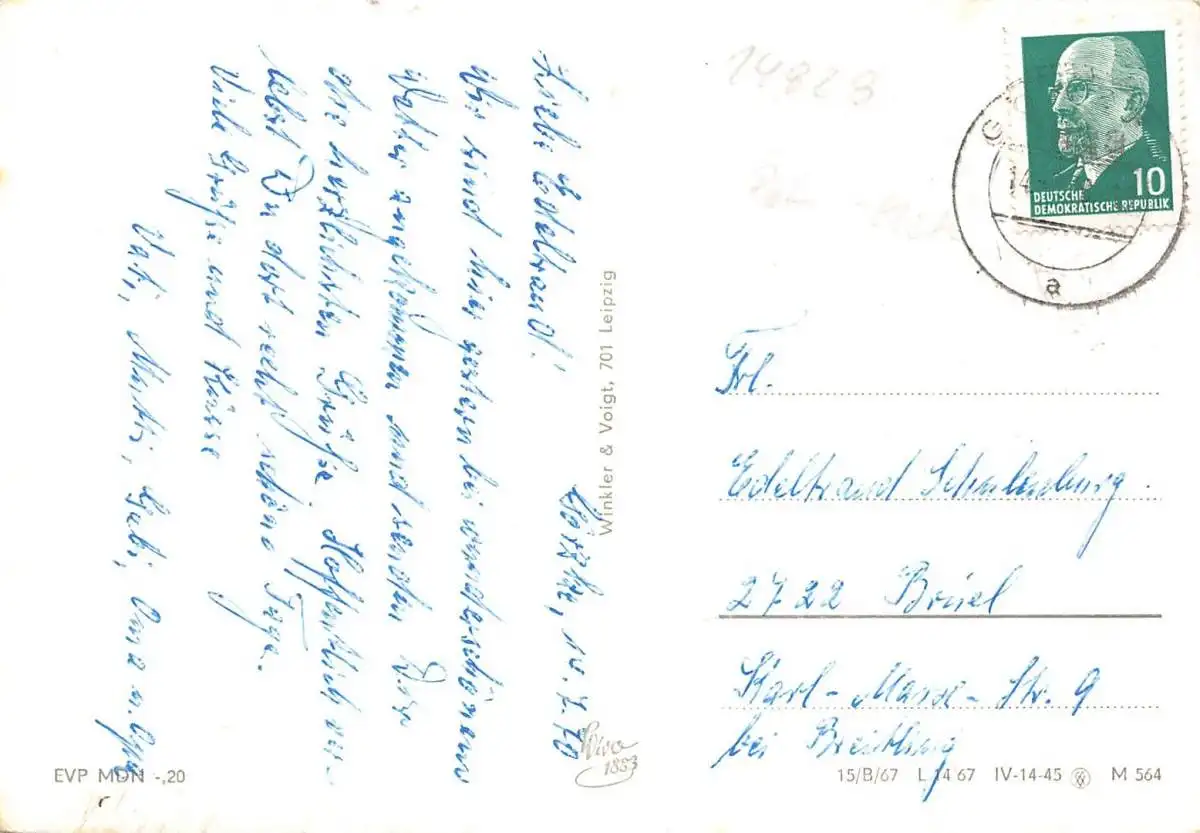 Görzke, 14.7.70
Liebe Edeltraud!
Wir sind hier gestern bei wunderschönem
Wetter angekommen und senden Dir
die herzlichsten Grüße. Hoffentlich ver-
lebst Du dort recht schöne Tage.
Viele Grüße und Küsse
Vati, Mutti, Gabi, Oma u. Opa
Winkler & Voigt, 701 Leipzig
Wivo
1883
EVP MDN -,20
14828
10
DEUTSCHE
DEMOKRATISCHE REPUBLIK
G
14
a
Frl.
Edeltraud Schulenburg.
2722 Brüel
Karl-Marx-Str. 9
bei Breitling
15/B/67 L 14 67 IV-14-45 M 564